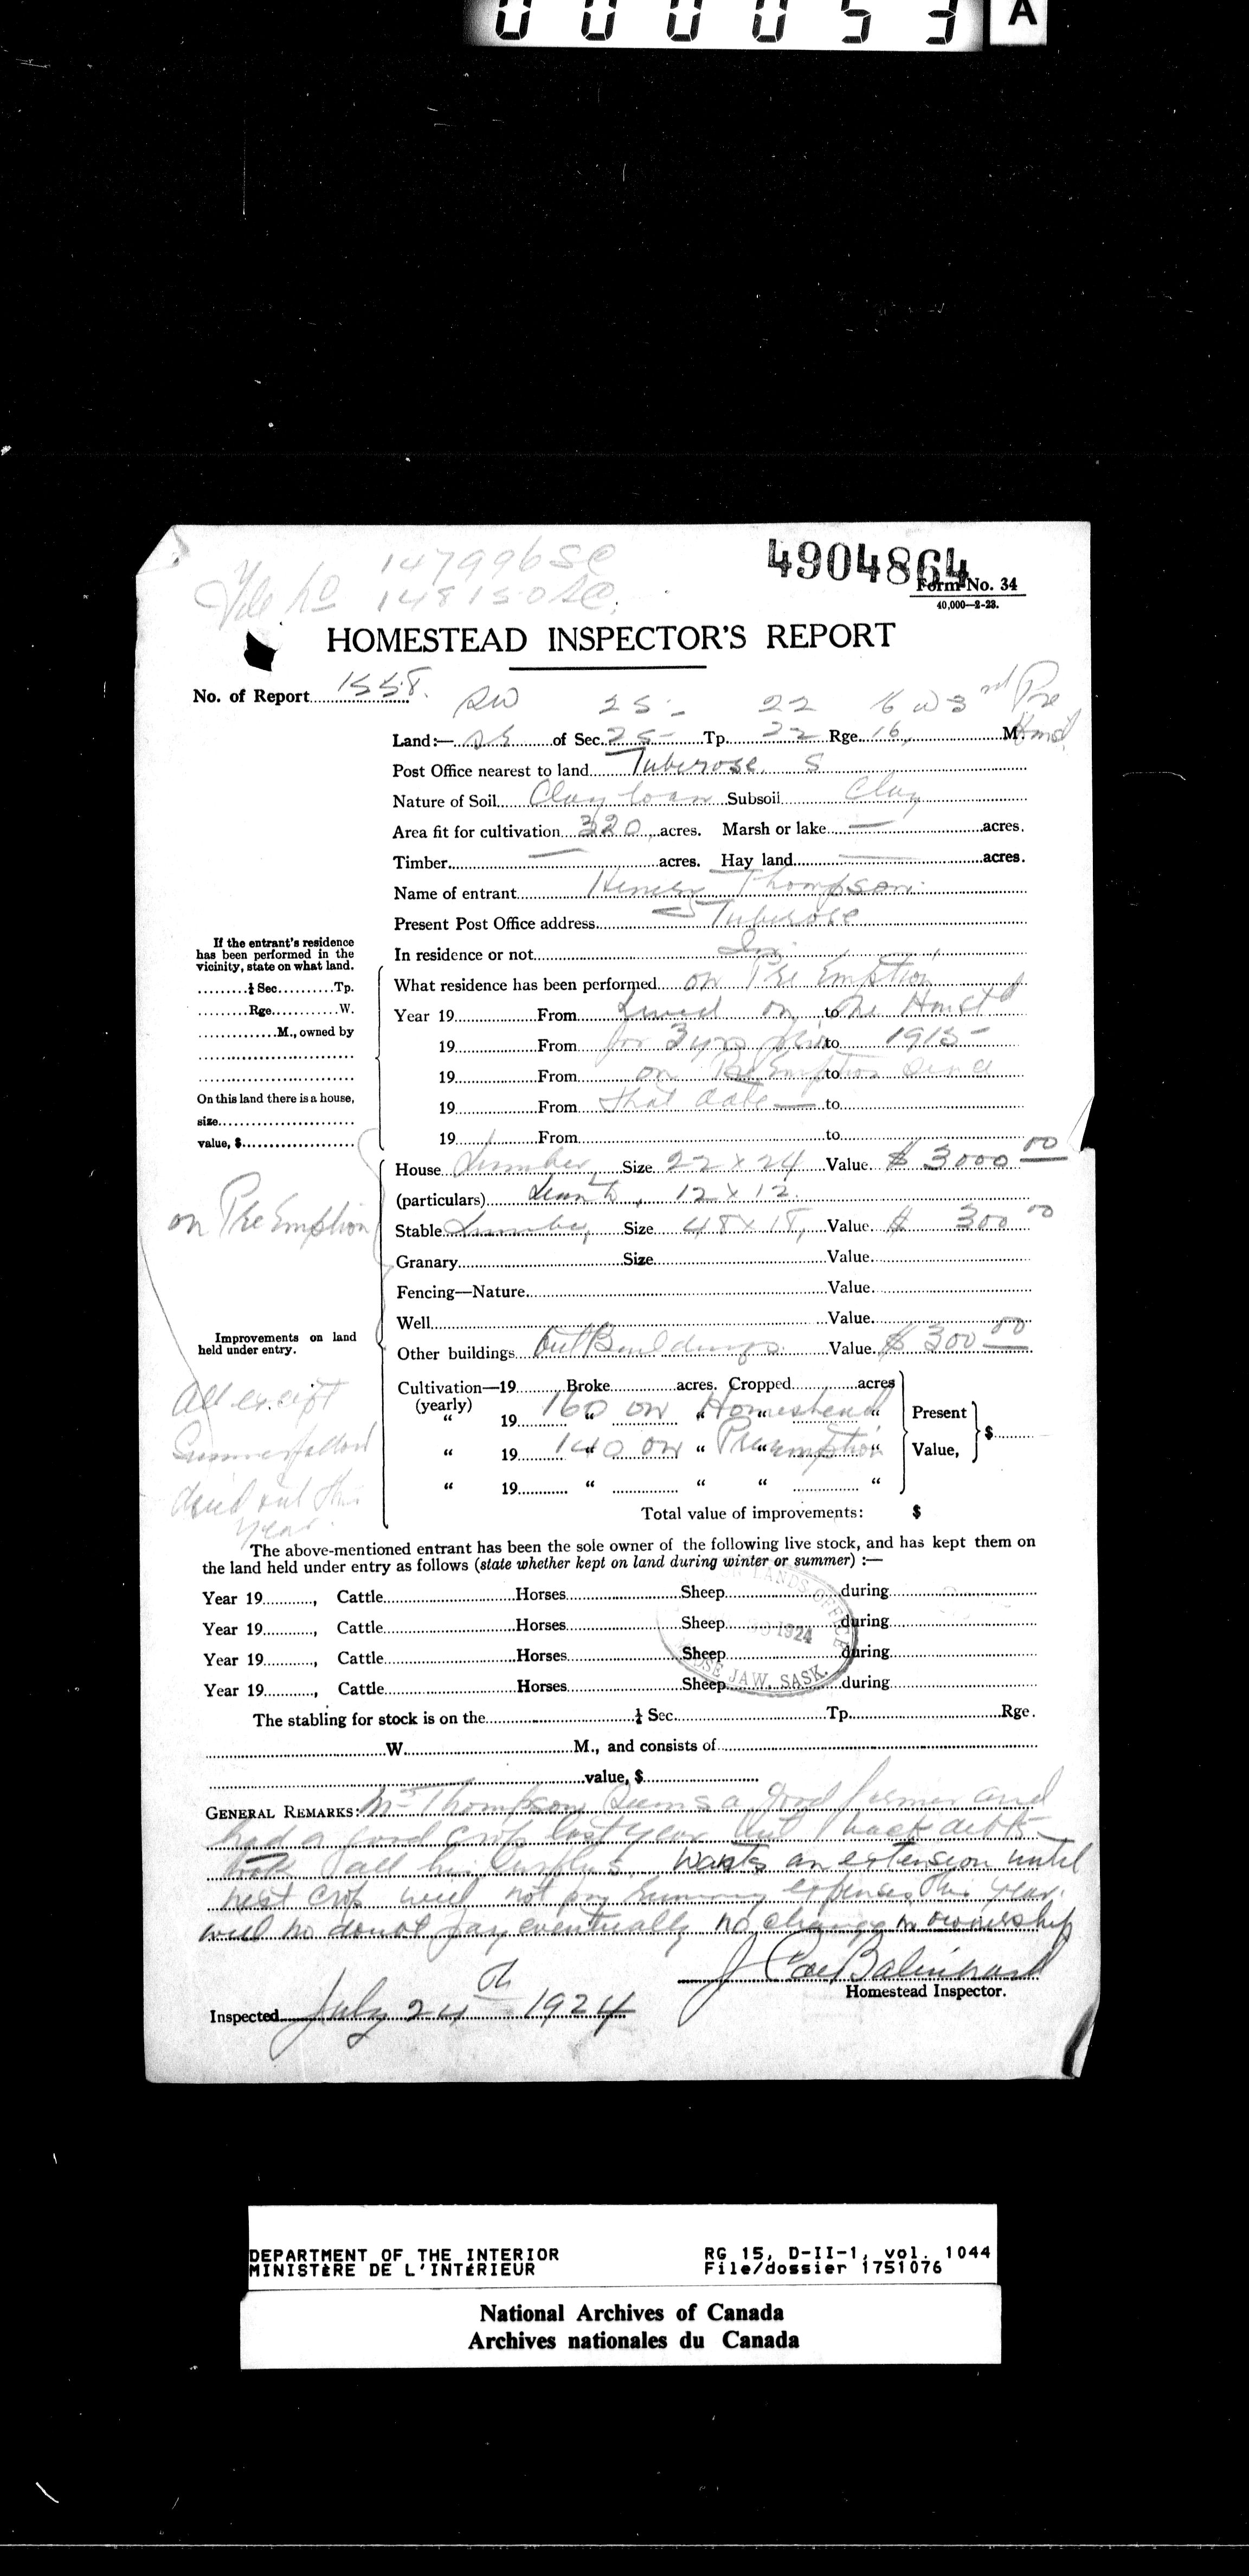 000053 A
147996 SC
File No 148150 SC.
4904864
Form No. 34
40,000—2-23.
HOMESTEAD INSPECTOR'S REPORT
No. of Report 1558.
SW 25 - 22 16 W 3rd Pre
Land:— SE of Sec. 25 Tp. 22 Rge. 16, M. Hmsd
Post Office nearest to land Tuberose. S
Nature of Soil Clay loam Subsoil Clay
Area fit for cultivation 320 acres. Marsh or lake — acres.
Timber — acres. Hay land — acres.
Name of entrant Henery Thompson.
Present Post Office address Tuberose
In residence or not In
If the entrant's residence
has been performed in the
vicinity, state on what land.
........¼ Sec..........Tp.
........Rge...........W.
.............M., owned by
On this land there is a house,
size
value, $
What residence has been performed on Pre Emption
Year 19 From Lived on to the Hmstd
19 From for 3 yrs prior to 1915 -
19 From on Pre Emption to since
19 From that date — to
19 From to
on Pre Emption
House Lumber, Size 22 x 24 Value $ 3000 00
(particulars) Lean to, 12 x 12.
Stable Lumber, Size 48 x 18, Value $ 300 00
Granary Size Value
Fencing—Nature Value
Well Value
Improvements on land
held under entry.
Other buildings Out Buildings. Value $ 300 00
All except
Summerfallow
dried out this
year.
Cultivation—19 Broke acres. Cropped acres
(yearly)
" 19 160 on " Homestead " "
" 19 140 on " Preemption " "
" 19 " " " "
Present
Value, $
Total value of improvements: $
The above-mentioned entrant has been the sole owner of the following live stock, and has kept them on
the land held under entry as follows (state whether kept on land during winter or summer) :—
Year 19, Cattle Horses Sheep during
Year 19, Cattle Horses Sheep during
Year 19, Cattle Horses Sheep during
Year 19, Cattle Horses Sheep during
LANDS OFFICE
1924
MOOSE JAW, SASK.
The stabling for stock is on the ¼ Sec. Tp. Rge.
W. M., and consists of
value, $
GENERAL REMARKS: Mr Thompson seems a good farmer and
had a good crop last year but back debts
took all his surplus. Wants an extension until
next crop will not pay running expenses this year.
will no doubt pay eventually no change in ownership
J
Homestead Inspector.
Inspected July 24th 1924
DEPARTMENT OF THE INTERIOR
MINISTÈRE DE L'INTÉRIEUR
RG 15, D-II-1, vol. 1044
File/dossier 1751076
National Archives of Canada
Archives nationales du Canada